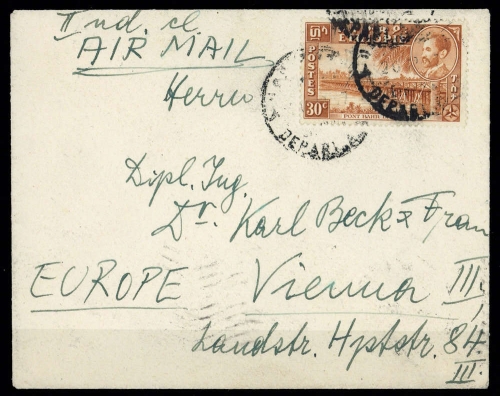 IInd. cl.
AIR MAIL
Herrn
Dipl. Ing.
Dr. Karl Beck & Frau
EUROPE Vienna III.,
Landstr. Hptstr. 84
III.
ETHIOPIE
POSTES
30c
PONT BAHR
DEPART
DEPART